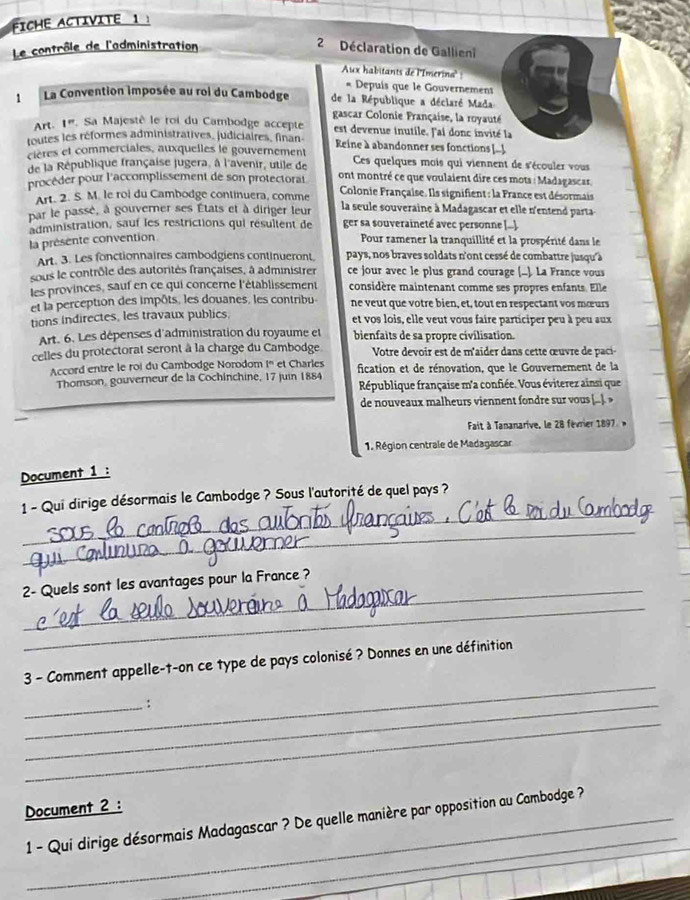 FICHE ACTIVITE 1 :
Le contrôle de l'administration
1 La Convention imposée au roi du Cambodge
Art. 1er. Sa Majesté le roi du Cambodge accepte
toutes les réformes administratives, judiciaires, finan-
cières et commerciales, auxquelles le gouvernement
de la République française jugera, à l'avenir, utile de
procéder pour l'accomplissement de son protectorat.
Art. 2. S. M. le roi du Cambodge continuera, comme
par le passé, à gouverner ses États et à diriger leur
administration, sauf les restrictions qui résultent de
la présente convention
Art. 3. Les fonctionnaires cambodgiens continueront,
sous le contrôle des autorités françaises, à administrer
les provinces, sauf en ce qui concerne l'établissement
et la perception des impôts, les douanes, les contribu-
tions indirectes, les travaux publics.
Art. 6. Les dépenses d'administration du royaume et
celles du protectorat seront à la charge du Cambodge.
Accord entre le roi du Cambodge Norodom Ier et Charles
Thomson, gouverneur de la Cochinchine, 17 juin 1884
2 Déclaration de Gallieni
Aux habitants de l'Imerina¹ :
« Depuis que le Gouvernement
de la République a déclaré Mada-
gascar Colonie Française, la royauté
est devenue inutile. J'ai donc invité la
Reine à abandonner ses fonctions [...].
Ces quelques mois qui viennent de s'écouler vous
ont montré ce que voulaient dire ces mots : Madagascar,
Colonie Française. Ils signifient : la France est désormais
la seule souveraine à Madagascar et elle n'entend parta-
ger sa souveraineté avec personne [...].
Pour ramener la tranquillité et la prospérité dans le
pays, nos braves soldats n'ont cessé de combattre jusqu'à
ce jour avec le plus grand courage [...]. La France vous
considère maintenant comme ses propres enfants. Elle
ne veut que votre bien, et, tout en respectant vos mœurs
et vos lois, elle veut vous faire participer peu à peu aux
bienfaits de sa propre civilisation.
Votre devoir est de m'aider dans cette œuvre de paci-
fication et de rénovation, que le Gouvernement de la
République française m'a confiée. Vous éviterez ainsi que
de nouveaux malheurs viennent fondre sur vous [...]. »
Fait à Tananarive, le 28 février 1897. »
1. Région centrale de Madagascar
Document 1 :
1 - Qui dirige désormais le Cambodge ? Sous l'autorité de quel pays ?
sous le contrôle des autorités françaises, C'est le roi du Cambodge
qui continuera à gouverner
2- Quels sont les avantages pour la France ?
c'est la seule souveraine à Madagascar
3 - Comment appelle-t-on ce type de pays colonisé ? Donnes en une définition
:
Document 2 :
1 - Qui dirige désormais Madagascar ? De quelle manière par opposition au Cambodge ?